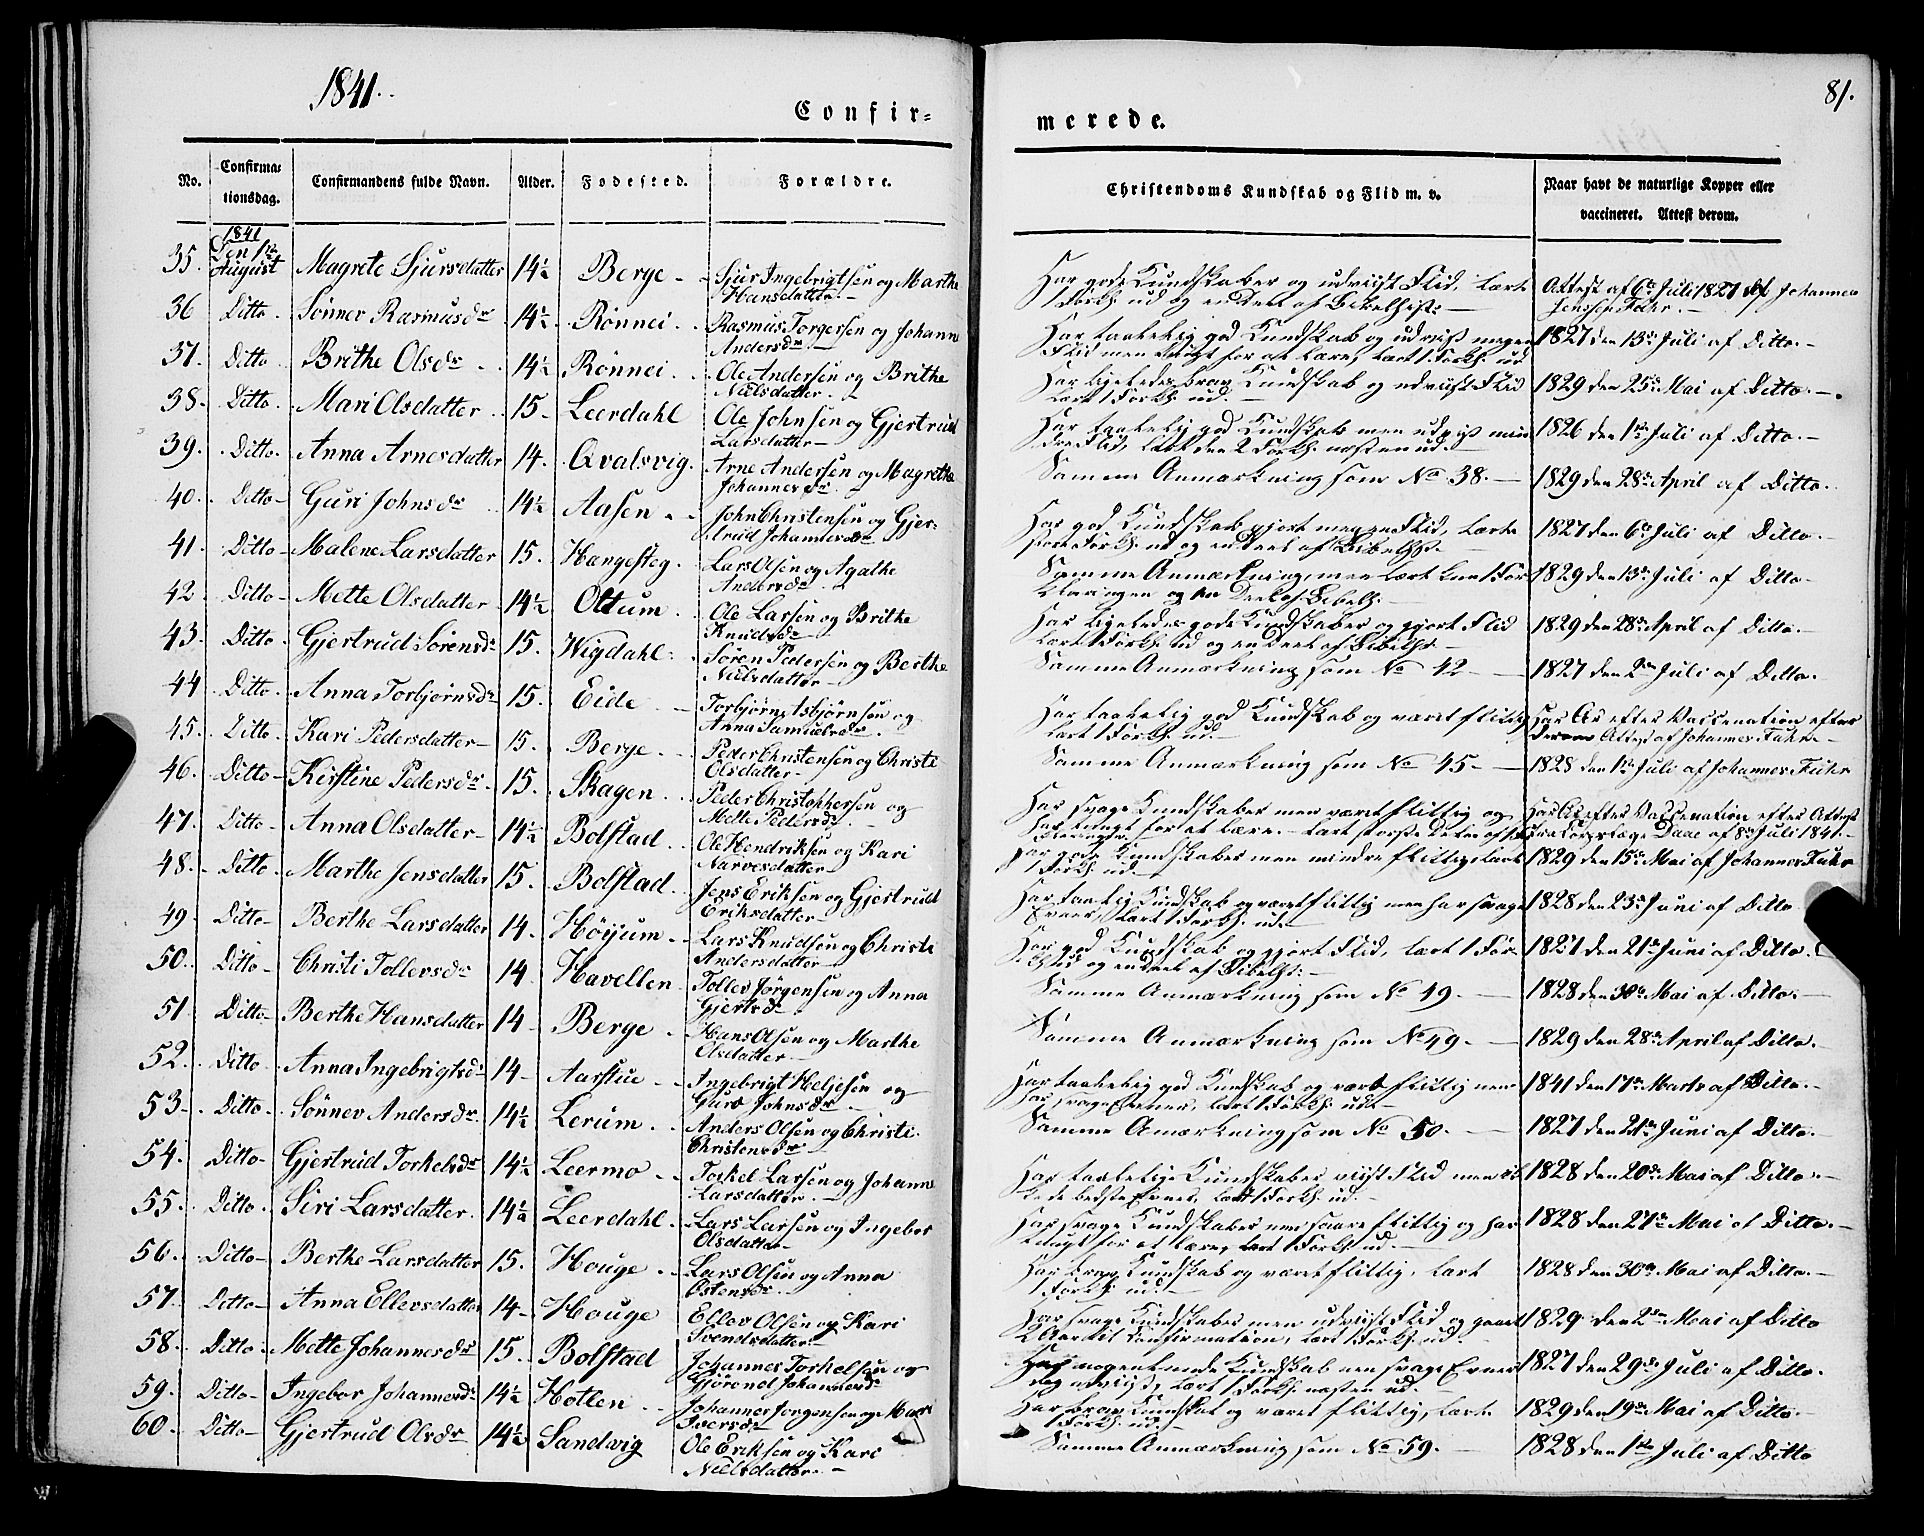 1841.
81.
Confir=
merede.
No.
Confirma:
tionsdag.
Confirmandens fulde Navn.
Alder.
Fødested.
Forældre.
Christendoms Kundskab og Flid m. v.
Naar havt de naturlige Kopper eller
vaccineret. Attest derom.
1841
Den 1ste
35. August Magrete Sjursdatter 14½ Berge - Sjur Ingebrigtsen og Marthe
Hansdatter -
Har gode Kundskaber og udviist Flid, lært
1 Forkl. ud og en Deel af Bibelhist:
Attest af 6te Juli 1827 af Johannes
Jensen Fuhr. -
36 Ditto Sønnev Rasmusdr 14½ Rønnei. Rasmus Torgersen og Johanne
Andersdr -
Har taalelig god Kundskab og udviist megen
Flid men tungt for at lære, lært 1 Forkl. ud
1827 den 13de Juli af Ditto. -
37. Ditto Brithe Olsdr 14½ Rønnei Ole Andersen og Brithe
Nielsdatter. -
Har ligeledes brav Kundskab og udviist Flid
lært 1 Forkl. ud. -
1829 den 25de Mai af Ditto. -
38. Ditto. Mari Olsdatter 15- Leerdahl Ole Johnsen og Gjertrud
Larsdatter -
Har taalelig god Kundskab men udviist min
dre Flid, lært den 2 Forkl. næsten ud.
1826 den 1ste Juli af Ditto. -
39. Ditto. Anna Arnesdatter 14. Qvalsvig. Arne Andersen og Magrethe
Johannesdr
Samme Anmærkning som No 38. -
1829 den 28de April af Ditto.
40. Ditto- Guri Johnsdr 14½ Aasen - John Christensen og Gjer:
trud Johannesdr
Har god Kundskab gjort megen Flid, lærte
store Forkl. ud og en Deel af Bibelh.
1827 den 6te Juli af Ditto. -
41. Ditto- Malene Larsdatter 15. Hangesteg. Lars Olsen og Agathe
Andersdr
Samme Anmærkning, men lært kun 1 For
klaringen og en Deel af Bibelh.
1829 den 13de Juli af Ditto-
42 Ditto- Mette Olsdatter 14½ Ottum. Ole Larsen og Brithe
Knudsdr
Har ligeledes gode Kundskaber og gjort Flid
lært 1 Forkl. ud og en Deel af Bibelh
1829 den 28de April af Ditto. -
43. Ditto. Gjertrud Sørensdr 15. Wigdahl: Søren Pedersen og Berthe
Nielsdatter -
Samme Anmærkning som No 42 -
1827 den 2den Juli af Ditto.
44 Ditto. Anna Torbjørnsdr 15. Eide - Torbjørn Asbjørnsen og
Anna Samuelsdr.
Har taalelig god Kundskab og været flittig
lært 1 Forkl. ud. -
Har Ar efter Vaccination efter
Attest af Johannes Fuhr. -
45. Ditto. Kari Pedersdatter- 15. Berge. Peder Christensen og Christi
Olsdatter -
Samme Anmærkning som No 45. -
1828 den 1ste Juli af Johannes Fuhr
46. Ditto- Kirstine Pedersdr. 15. Skagen. Peder Christophersen og
Mette Pedersdr -
Har svage Kundskaber men været flittig og
har tungt for at lære. -
Har Ar efter Vaccination efter Attest
fra Doctor Daae af 8de Juli 1841. -
47. Ditto- Anna Olsdatter- 14½ Bolstad. Ole Hendriksen og Kari
Aarvesdatter -
Har gode Kundskaber men mindre flittig, lært
1 Forkl. ud. -
1829 den 15de Mai af Johannes Fuhr
48. Ditto. Marthe Jensdatter 15. Bolstad. Jens Eriksen og Gjertrud
Eriksdatter-
Har taalig Kundskab og været flittig men har svage
Evner, lært 1 Forkl. ud.
1828 den 23de Juni af Ditto
49. Ditto- Berthe Larsdatter 14. Höyum. Lars Knudsen og Christi
Andersdatter -
Har god Kundskab og gjort Flid, lært 1 For
kl. ud og en Deel af Bibelh. -
1827 den 21de Juni af Ditto.
50. Ditto- Christi Tollevsdr 14. Havellen. Tollev Jørgensen og Anna
Gjertsdr -
Samme Anmærkning som No 49. -
1828 den 30te Mai af Ditto. -
51 Ditto- Berthe Hansdatter 14- Berge - Hans Olsen og Marthe
Olsdatter -
Samme Anmærkning som No 49. -
1829 den 28de April af Ditto. -
52. Ditto- Anna Ingebrigtsdr 14- Aarstue - Ingebrigt Heljesen og
Guro Johnsdr -
Har taalelig god Kundskab og været flittig men
har svage Evner, lært 1 Forkl. ud. -
1841 den 17de Marts af Ditto. -
53- Ditto. Sønnev Andersdr. 14½ Lerum. Anders Olsen og Christi
Christensdr -
Samme Anmærkning som No 50. -
1827 den 21de Juni af Ditto. -
54. Ditto- Gjertrud Torkelsdr 14½ Leermo - Torkel Larsen og Johanne
Larsdatter. -
Har taalelige Kundskaber viist Flid men ik
ke de bedste Evner, lært 1 Forkl. ud. -
1828 den 20de Mai af Ditto. -
55. Ditto. Siri Larsdatter. 14½ Leerdahl. Lars Larsen og Ingebor
Olsdatter-
Har svage Kundskaber men været flittig og har
tungt for at lære, lært 1 Forkl. ud. -
1828 den 27de Mai af Ditto. -
56. Ditto- Berthe Larsdatter 15. Houge. Lars Olsen og Anna
Østensdr -
Har brav Kundskab og været flittig, lært
1 Forkl. ud. -
1828 den 30te Mai af Ditto. -
57. Ditto- Anna Ellevsdatter 14- Houge Ellev Olsen og Kari
Svendsdatter -
Har svage Kundskaber men udviist Flid og gaaet
2 Aar til Confirmation, lært 1 Forkl. ud. -
1829 den 2den Mai af Ditto
58. Ditto. Mette Johannesdr 15. Bolstad Johannes Torkelsen og
Gjørond Johannesdr
Har nogenlunde Kundskab men svage Evner
lært 1 Forkl. næsten ud.
1827 den 29de Juli af Ditto.
59. Ditto- Ingebor Johannesdr 14½ Hotlen. Johannes Jørgensen og Mari
Iversdr -
Har brav Kundskab og været flittig, lærte
1 Forkl. ud. -
1829 den 19de Mai af Ditto. -
60. Ditto- Gjertrud Olsdr 14½ Sandvig Ole Eriksen og Kari
Nielsdatter. -
Samme Anmærkning som No 59. -
1828 den 1ste Juli af Ditto